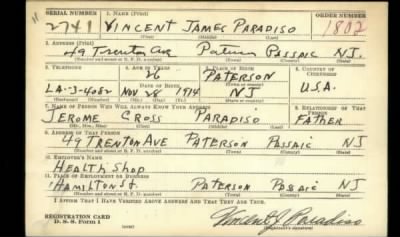 SERIAL NUMBER 1. NAME (Print) ORDER NUMBER
2741 VINCENT JAMES PARADISO 1802
(First) (Middle) (Last)
2. ADDRESS (Print)
49 Trenton Ave Paterson PASSAIC N.J.
(Number and street or R. F. D. number) (Town) (County) (State)
3. TELEPHONE 4. AGE IN YEARS 5. PLACE OF BIRTH 6. COUNTRY OF CITIZENSHIP
26 PATERSON
LA-3-4052 DATE OF BIRTH (Town or county)
Nov 28 1914 NJ U.S.A.
(Exchange) (Number) (Mo.) (Day) (Yr.) (State or country)
7. NAME OF PERSON WHO WILL ALWAYS KNOW YOUR ADDRESS 8. RELATIONSHIP OF THAT PERSON
JEROME CROSS PARADISO FATHER
(Mr., Mrs., Miss) (First) (Middle) (Last)
9. ADDRESS OF THAT PERSON
49 TRENTON AVE PATERSON PASSAIC NJ
(Number and street or R. F. D. number) (Town) (County) (State)
10. EMPLOYER'S NAME
HEALTH SHOP
11. PLACE OF EMPLOYMENT OR BUSINESS
HAMILTON St PATERSON PASSAIC NJ
(Number and street or R. F. D. number) (Town) (County) (State)
I AFFIRM THAT I HAVE VERIFIED ABOVE ANSWERS AND THAT THEY ARE TRUE.
REGISTRATION CARD
D. S. S. Form 1 Vincent J. Paradiso
(Registrant's signature)